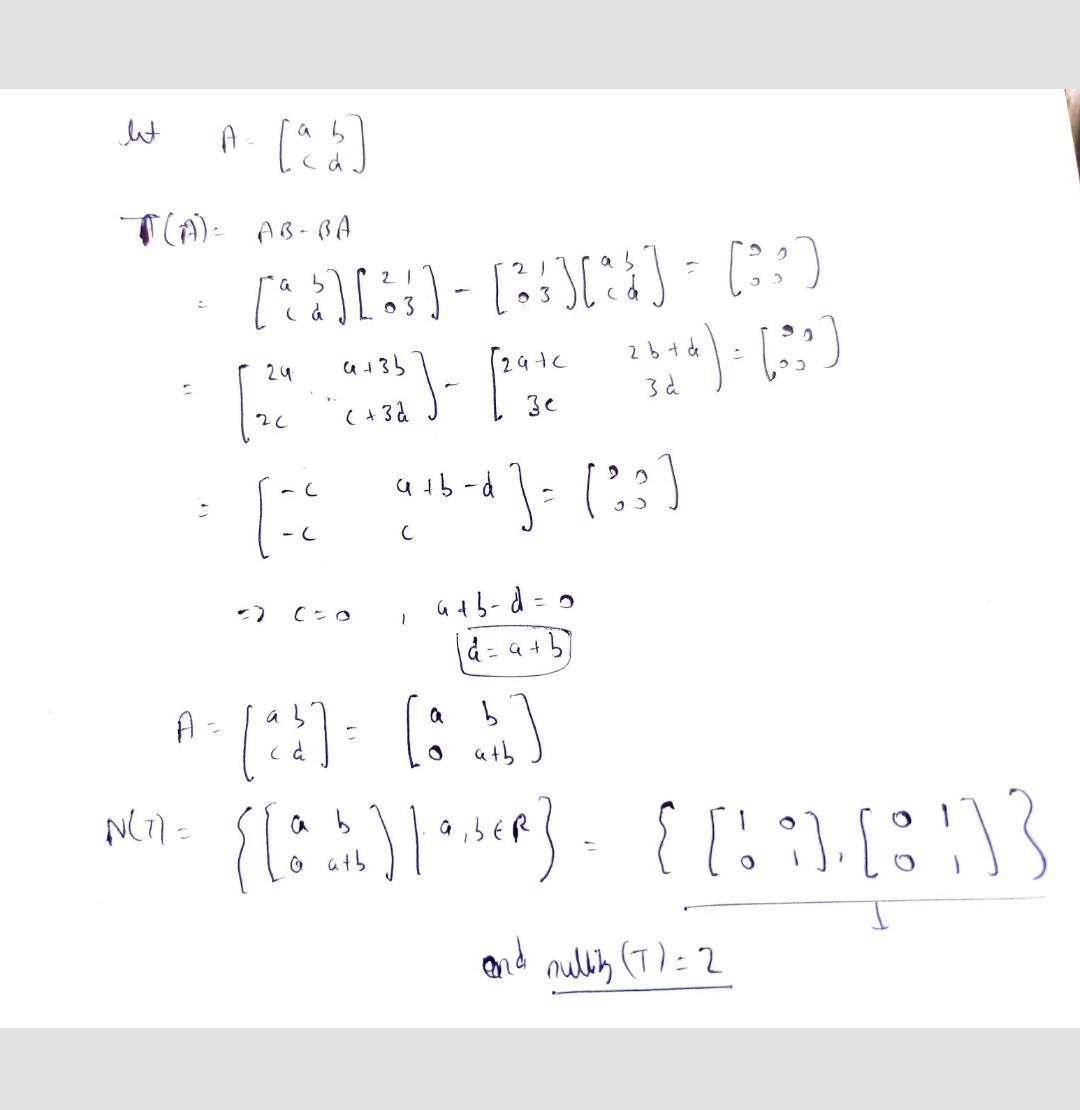 let A = [a b; c d]
T(A) = AB - BA
= [a b; c d] [2 1; 0 3] - [2 1; 0 3] [a b; c d] = [0 0; 0 0]
= [2a a+3b; 2c c+3d] - [2a+c 2b+d; 3c 3d] = [0 0; 0 0]
= [-c a+b-d; -c c] = [0 0; 0 0]
=> c=0 , a+b-d=0
d = a+b
A = [a b; c d] = [a b; 0 a+b]
N(T) = {[a b; 0 a+b] | a,b∈R} = {[1 0; 0 1], [0 1; 0 1]}
and nullity (T) = 2